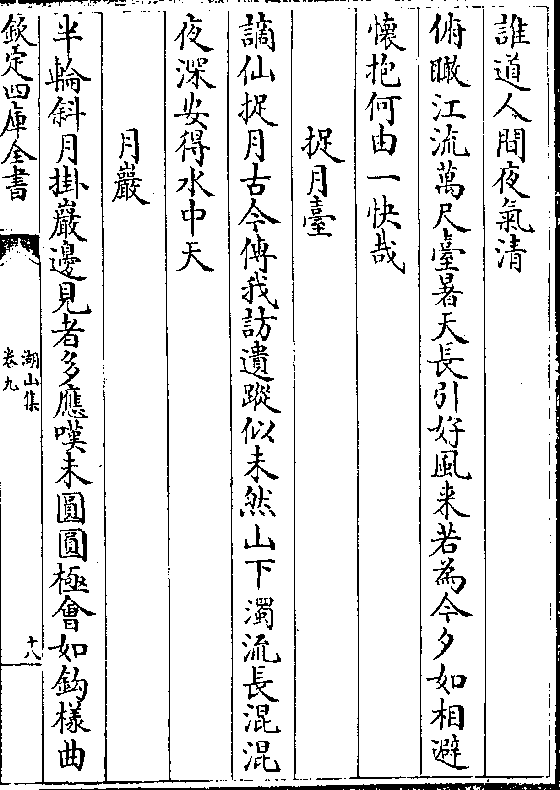 誰道人間夜氣清
俯瞰江流萬尺臺暑天長引好風来若為今夕如相避
懐抱何由一快哉
捉月臺
謫仙捉月古今傳我訪遺蹤似未然山下濁流長混混
夜深安得水中天
月巖
半輪斜月掛巖邊見者多應嘆未圓圓極會如鈎樣曲
欽定四庫全書
湖山集
卷九
十八